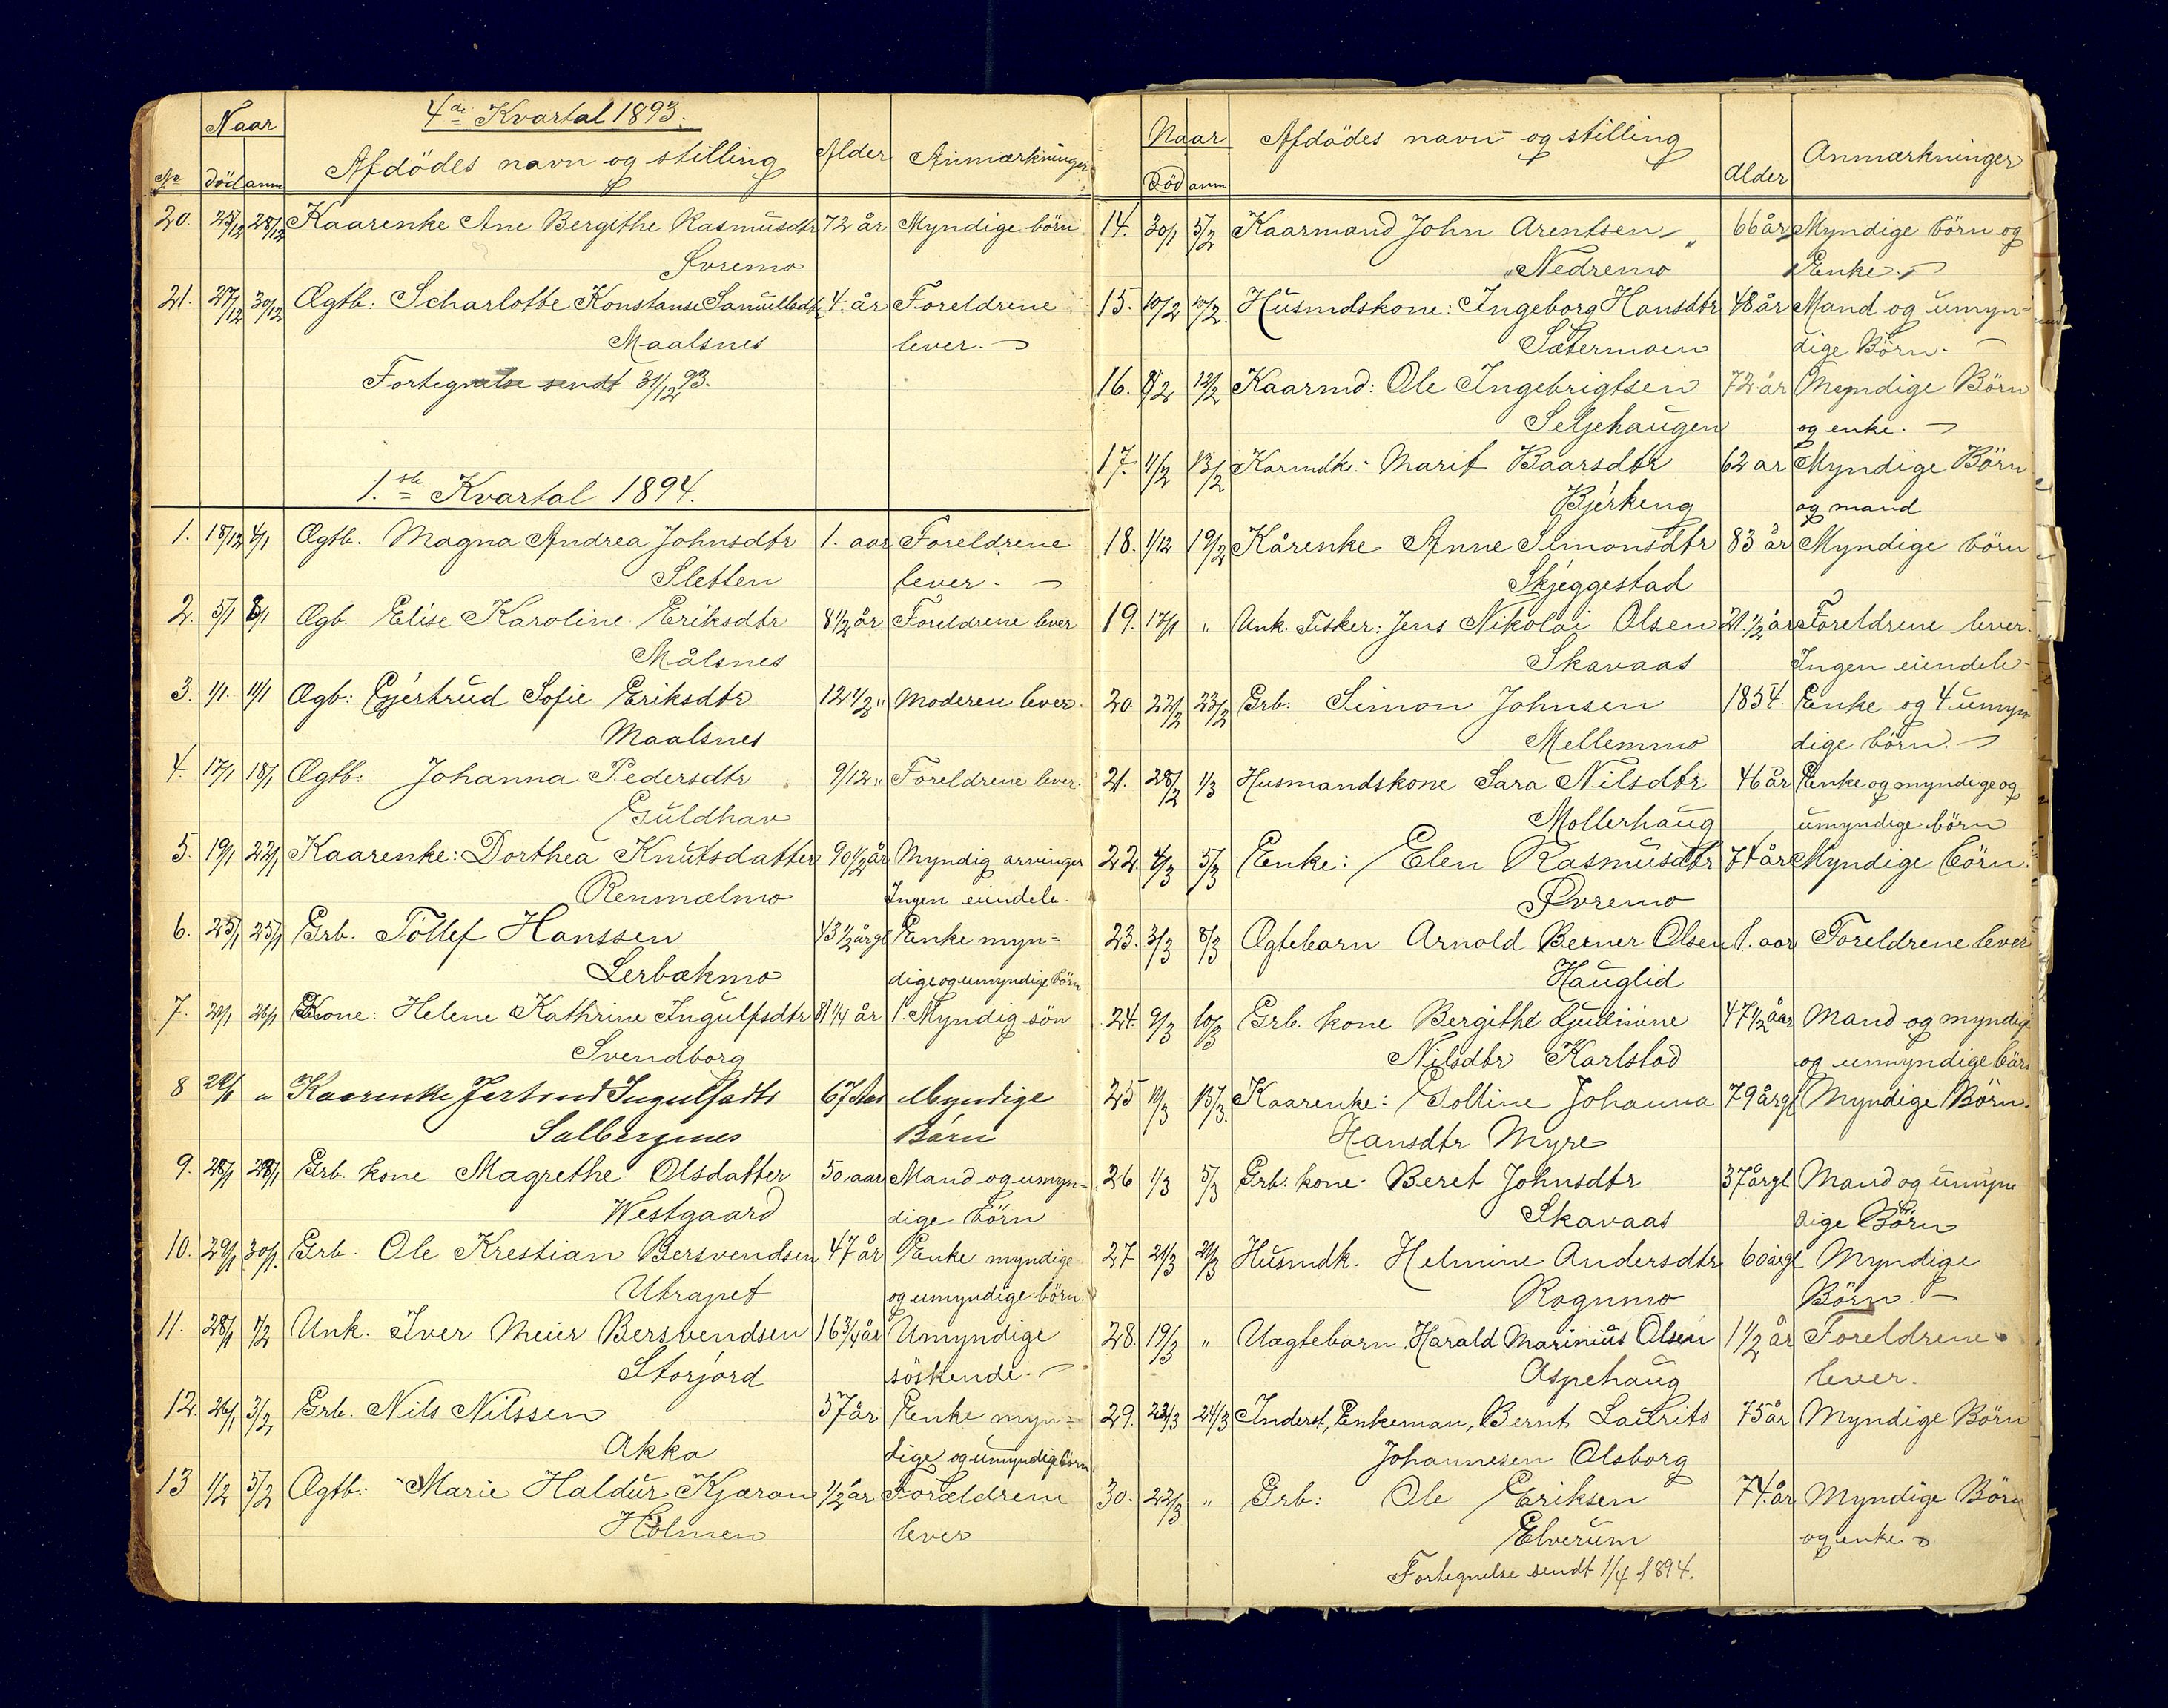 4de Kvartal 1893.
Naar
No död anm Afdödes navn og stilling Alder Anmærkninger
20. 25/12 28/12 Kaarenke Ane Bergithe Rasmusdtr 72 år Myndige börn
Øvremo
21. 27/12 30/12 Ægtb: Scharlotte Konstanse Samuelsdtr 4. år Foreldrene
Maalsnes lever.
Fortegnelse sendt 31/12 93.
1.ste Kvartal 1894.
1. 18/12 4/1 Ægtb. Magna Andrea Johnsdtr 1. aar Foreldrene
Sletten lever.
2. 5/1 8/1 Ægb. Elise Karoline Eriksdtr 8 1/2 år Foreldrene lever
Målsnes
3. 1/1. 11/1 Ægb: Gjertrud Sofie Eriksdtr 12 1/2 " Moderen lever.
Maalsnes
4. 17/1 18/1 Ægtb: Johanna Pedersdtr 9/12 " Foreldrene lever.
Guldhav
5. 19/1 22/1 Kaarenke: Dorthea Knutsdatter 90 1/2 år Myndig arvinger
Renmælmo Ingen eiendele.
6. 23/1 25/1 Grb. Tollef Hanssen 43 1/2 årgl Enke myn=
Lerbækmo dige og umyndige börn
7. 24/1 26/1 Kone: Helene Kathrine Ingulfsdtr 81 1/4 år 1. Myndig sön
Svendborg
8 29/1 " Kaarenke Jertrud Ingulfsdtr 67 Aar Myndige
Salbergnes Börn
9. 28/1 29/1 Grb. kone Magrethe Olsdatter 50 aar Mand og umyn=
Westgaard dige börn
10. 29/1 30/1. Grb. Ole Krestian Bersvendsen 47 år Enke myndige
Utrapet og umyndige börn.
11. 28/1 1/2 Unk. Iver Meier Bersvendsen 16 3/4 år Umyndige
Storjord söskende.
12. 26/1 3/2 Grb. Nils Nilssen 57 år Enke myn=
Akka dige og umyndige börn
13 1/2 5/2 Ægtb: Marie Haldur Kjæran 1/2 år Foræeldrene
Holmen lever
Naar Afdödes navn og stilling Alder Anmærkninger
Död anm
14. 30/1 5/2 Kaarmand John Arentsen 66 år Myndige börn og
Nedremo Enke.
15. 10/2 10/2. Husmdskone: Ingeborg Hansdtr 48 år Mand og umyn=
Sætermoen dige Börn.
16. 8/2 12/2 Kaarmd: Ole Ingebrigtsen 72 år Myndige Börn
Seljehaugen og enke.
17. 11/2 13/2 Karmdk: Marit Baarsdtr 62 ar Myndige Börn
Bjerkeng og mand
18. 1/12 19/2 Kårenke Anne Simonsdtr 83 år Myndige börn
Skjeggestad
19. 17/1 " Unk. Fisker: Jens Nikolai Olsen 21. 1/2 år Foreldrene lever.
Skavaas Ingen eiendele.
20. 22/2 23/2 Grb: Simon Johnsen 1854. Enke og 4 umyn
Mellemmo dige börn.
21. 28/2 1/3 Husmandskone Sara Nilsdtr 46 år Enke og myndige og
Mollerhaug umyndige börn
22. 4/3 5/3 Enke: Elen Rasmusdtr 74 år Myndige börn.
Øvremo
23. 3/3 8/3 Ægtebarn Arnold Berner Olsen 1. aar Foreldrene lever
Hauglid
24. 9/3 10/3 Grb. kone Bergithe 47 1/2 åar Mand og myndige
Nilsdtr Karlstad og umyndige börn
25 10/3 13/3. Kaarenke: Golline Johanna 79 årgl Myndige Börn.
Hansdtr Myre
26 1/3 5/3 Grb. kone. Beret Johnsdtr 37 årgl Mand og umyn
Skavaas dige Börn
27 21/3 21/3 Husmdk. Helmine Andersdtr 60 årgl Myndige
Rognmo Börn.
28. 19/3 " Uægtebarn. Harald Marinius Olsen 1 1/2 år Foreldrene
Aspehaug lever.
29. 22/3 24/3 Inderst, Enkeman, Bernt Laurits 75 år Myndige Börn
Johannesen Olsborg
30. 22/3 " Grb: Ole Eriksen 74. år Myndige Börn
Elverum og enke
Fortegnelse sendt 1/4 1894.